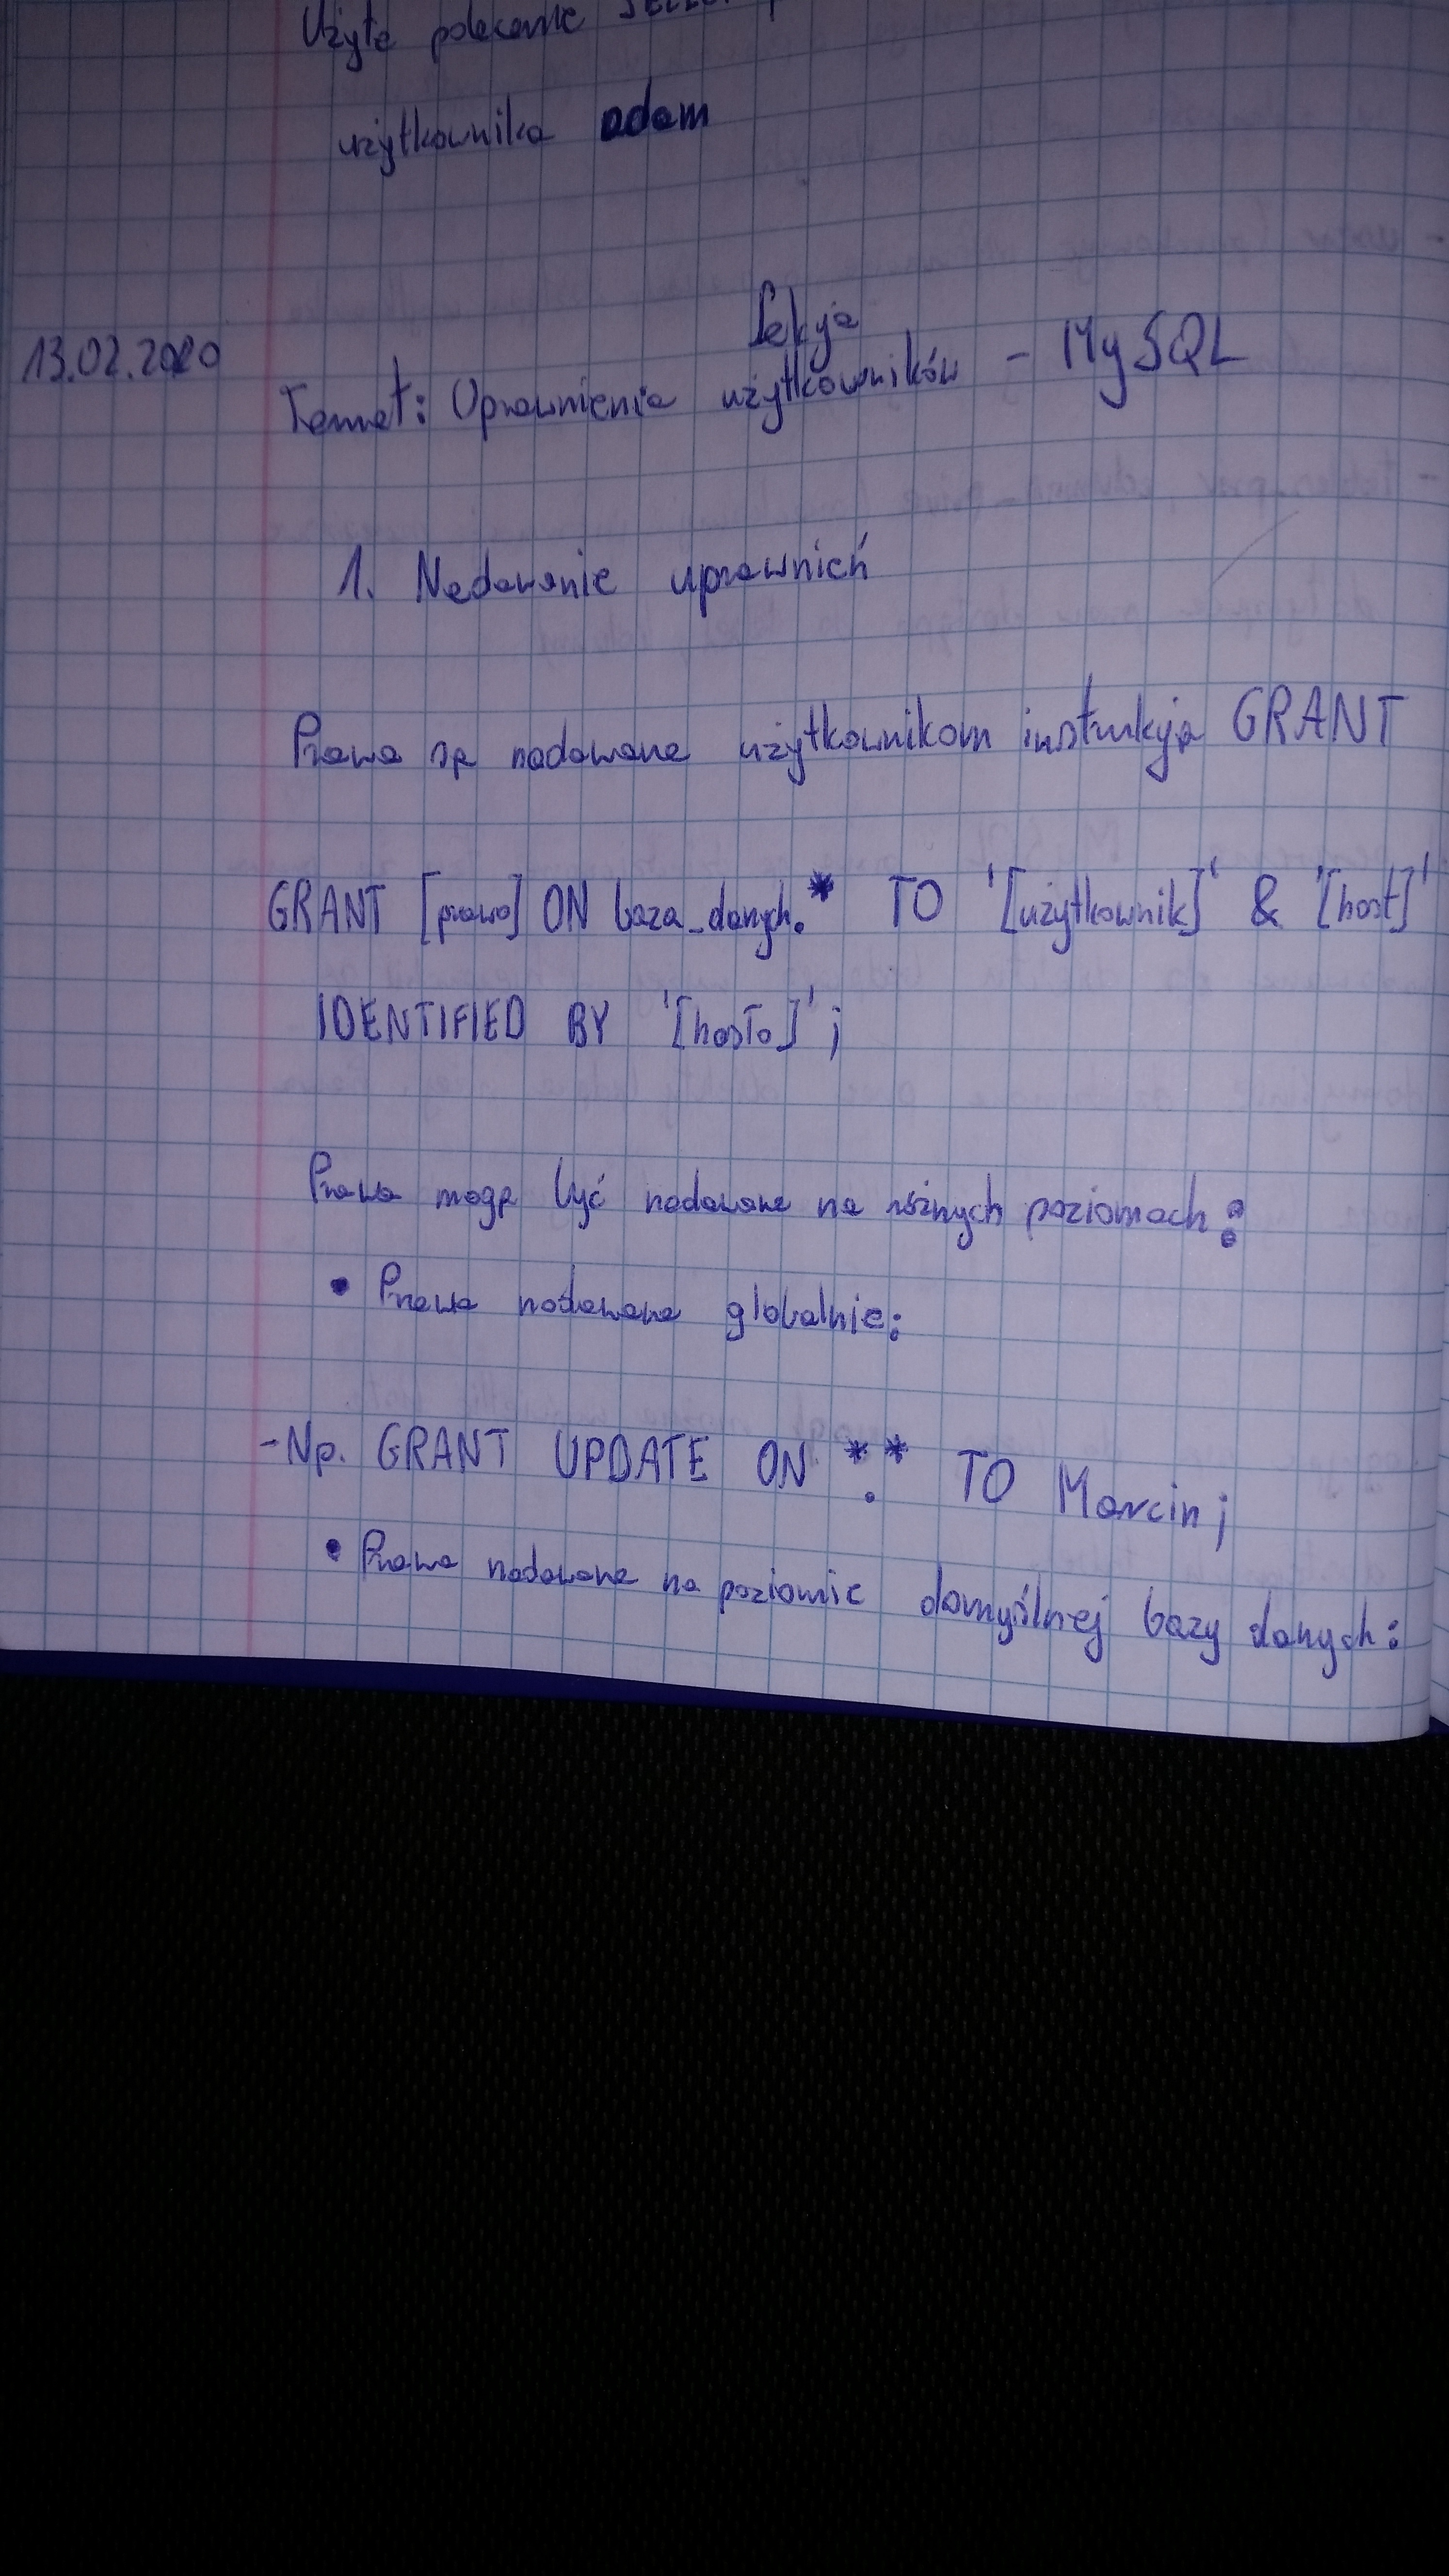 Użyte polecenie
użytkownika adam
Lekcja
13.02.2020
Temat: Uprawnienia użytkowników - MySQL
1. Nadawanie uprawnień
Prawa są nadawane użytkownikom instrukcją GRANT
GRANT [prawo] ON baza_danych.* TO '[użytkownik]' & '[host]'
IDENTIFIED BY '[hasło]';
Prawa mogą być nadawane na różnych poziomach:
• Prawa nadawane globalnie:
-Np. GRANT UPDATE ON *.* TO Marcin;
• Prawa nadawane na poziomie domyślnej bazy danych: